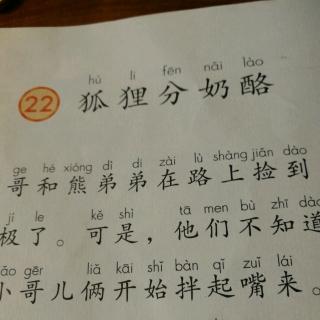 hú li fēn nǎi lào
22 狐狸分奶酪
ge hé xióng dì di zài lù shàng jiǎn dào
哥和熊弟弟在路上捡到
jí le kě shì tā men bù zhī dào
极了。可是，他们不知道
gēr liǎ kāi shǐ bàn qǐ zuǐ lái
小哥儿俩开始拌起嘴来。